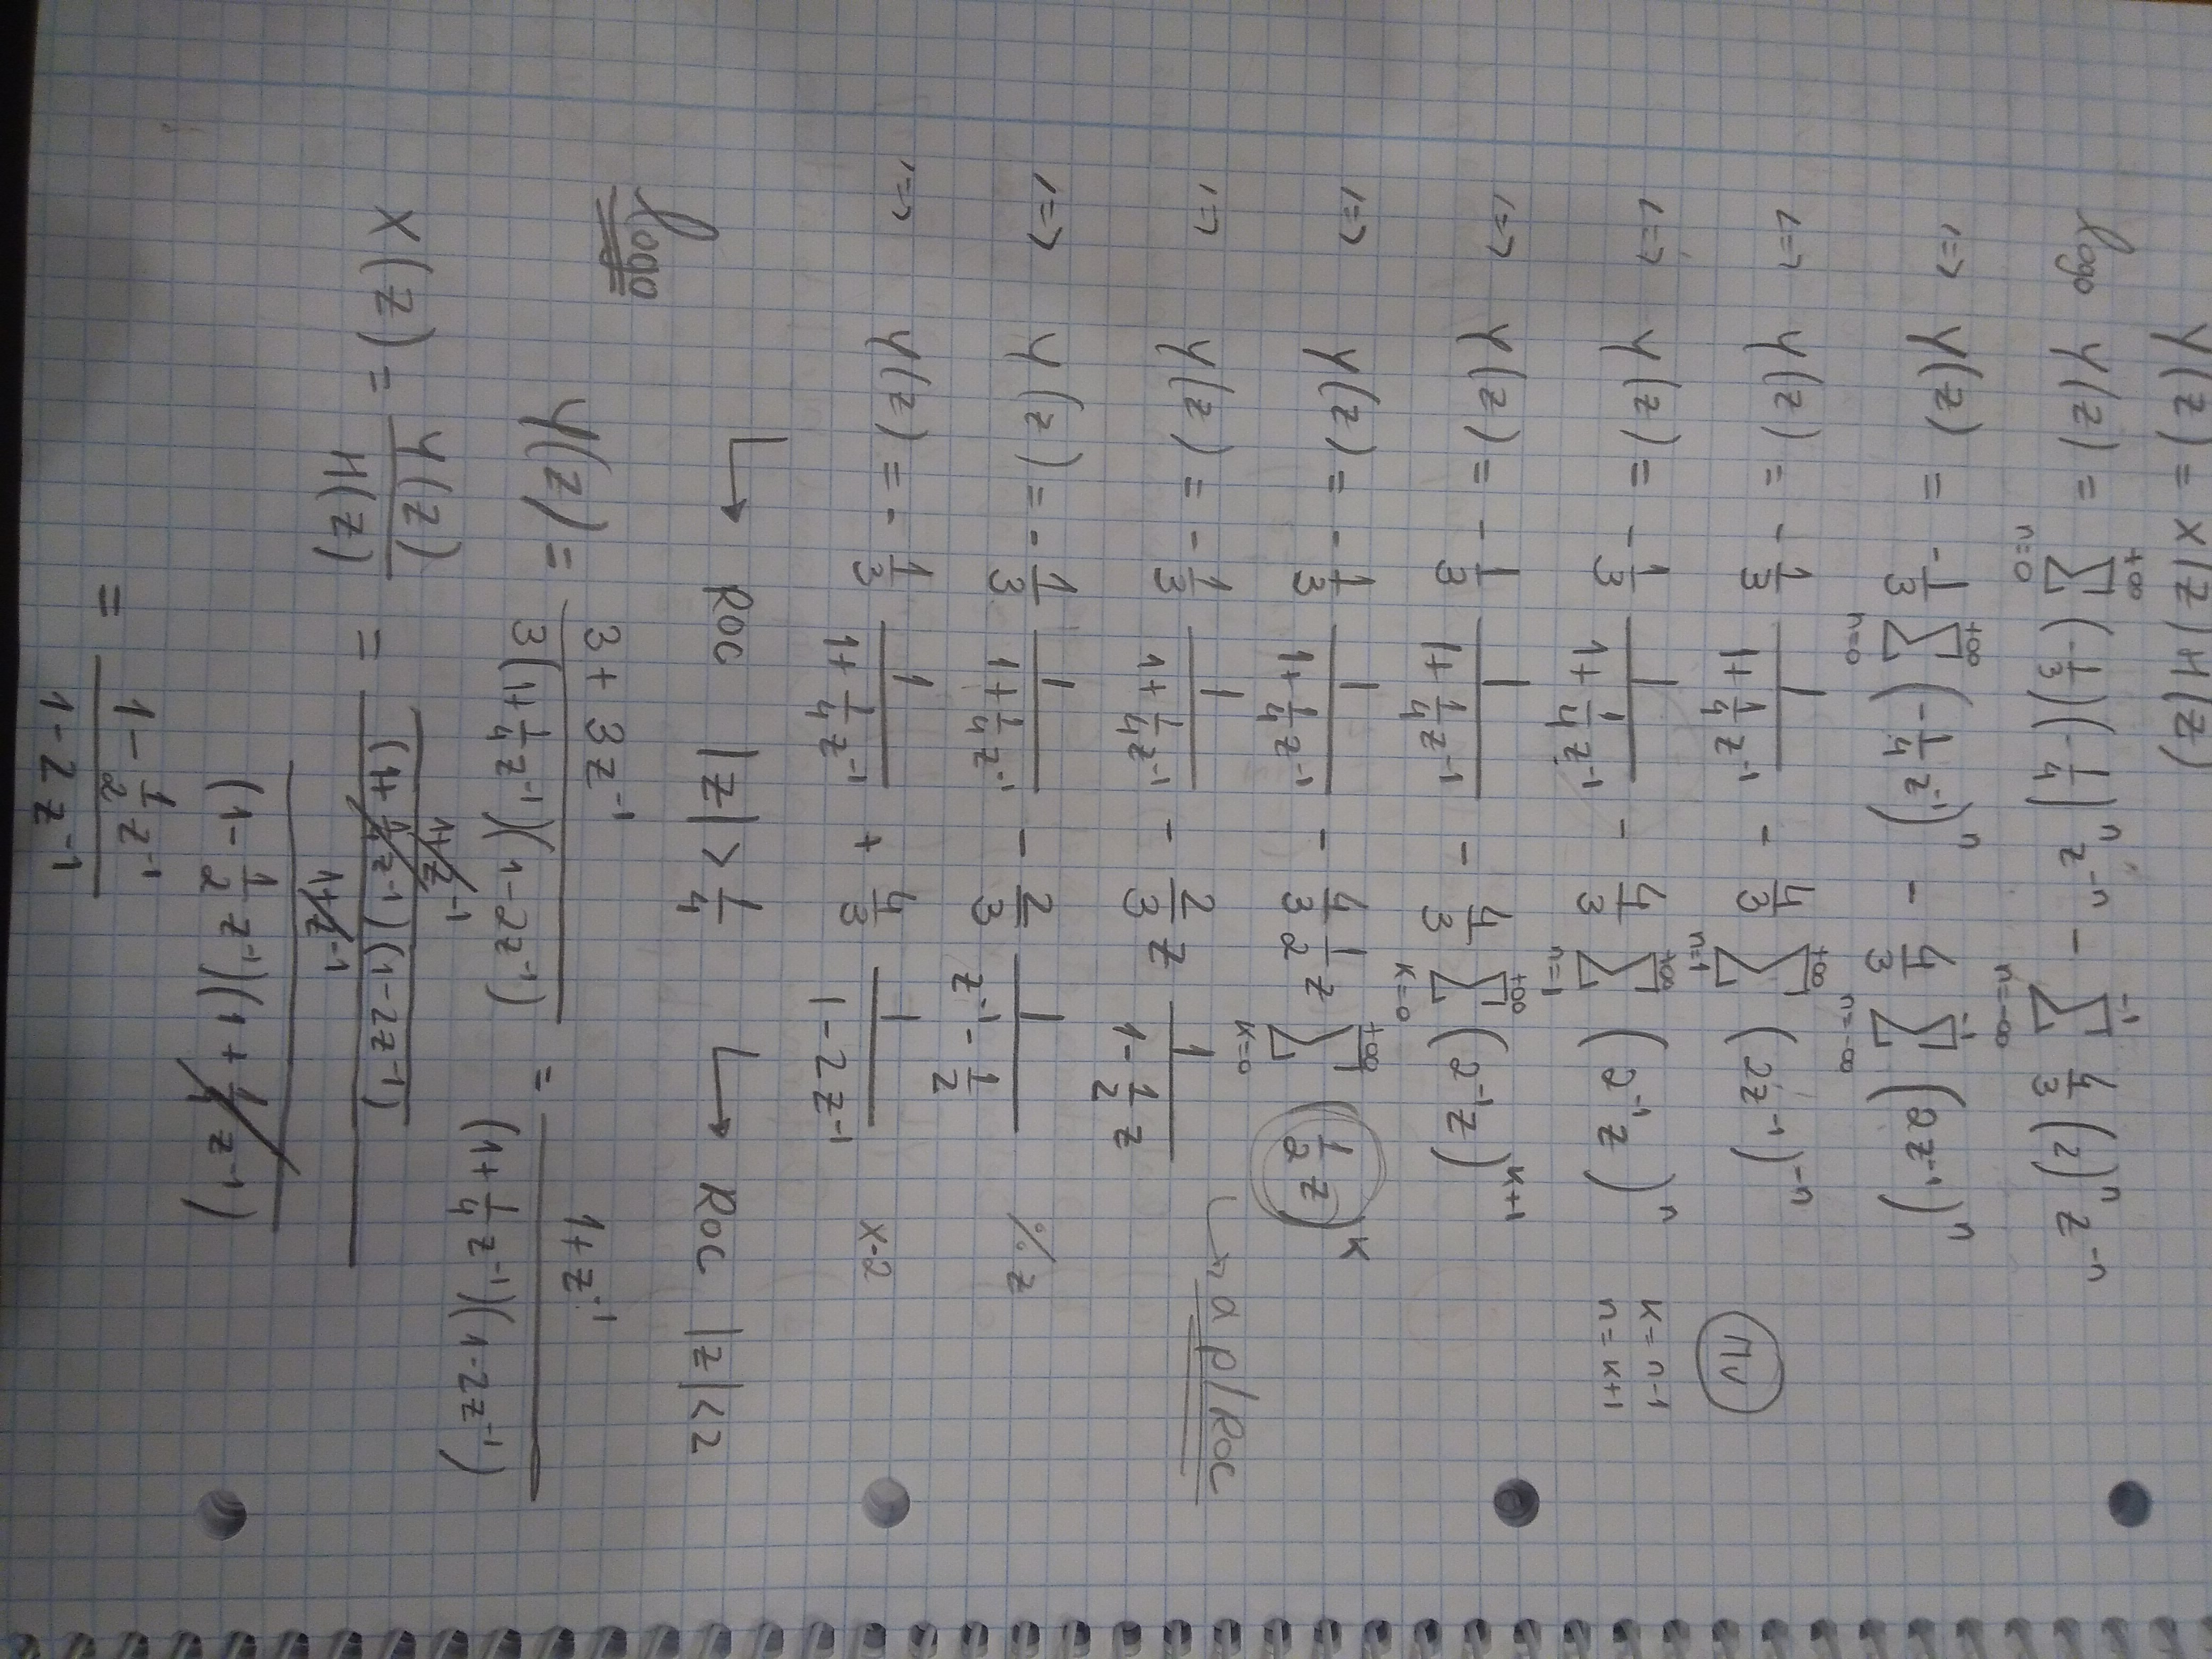 Y(z) = X(z) H(z)
logo Y(z) = +∞ Σ n=0 (-1/3)(-1/4)^n z^-n - -1 Σ n=-∞ 4/3 (2)^n z^-n
<=> Y(z) = -1/3 +∞ Σ n=0 (-1/4 z^-1)^n - 4/3 -1 Σ n=-∞ (2z^-1)^n
<=> Y(z) = -1/3 1/(1+1/4 z^-1) - 4/3 +∞ Σ n=1 (2z^-1)^-n
<=> Y(z) = -1/3 1/(1+1/4 z^-1) - 4/3 +∞ Σ n=1 (2^-1 z)^n k = n-1
n = k+1
<=> Y(z) = -1/3 1/(1+1/4 z^-1) - 4/3 +∞ Σ k=0 (2^-1 z)^k+1
<=> Y(z) = -1/3 1/(1+1/4 z^-1) - 4/3 1/2 z +∞ Σ k=0 (1/2 z)^k
↳ a p/ROC
<=> Y(z) = -1/3 1/(1+1/4 z^-1) - 2/3 z 1/(1-1/2 z)
<=> Y(z) = -1/3 1/(1+1/4 z^-1) - 2/3 1/(z^-1 - 1/2) ÷ z
<=> Y(z) = -1/3 1/(1+1/4 z^-1) + 4/3 1/(1-2z^-1) x-2
↳ ROC |z| > 1/4 ↳ ROC |z| < 2
logo
Y(z) = (3+3z^-1)/(3(1+1/4 z^-1)(1-2z^-1)) = (1+z^-1)/((1+1/4 z^-1)(1-2z^-1))
X(z) = Y(z)/H(z) = ((1+z^-1)/((1+1/4 z^-1)(1-2z^-1)))/((1+z^-1)/((1-1/2 z^-1)(1+1/4 z^-1)))
= (1-1/2 z^-1)/(1-2z^-1)